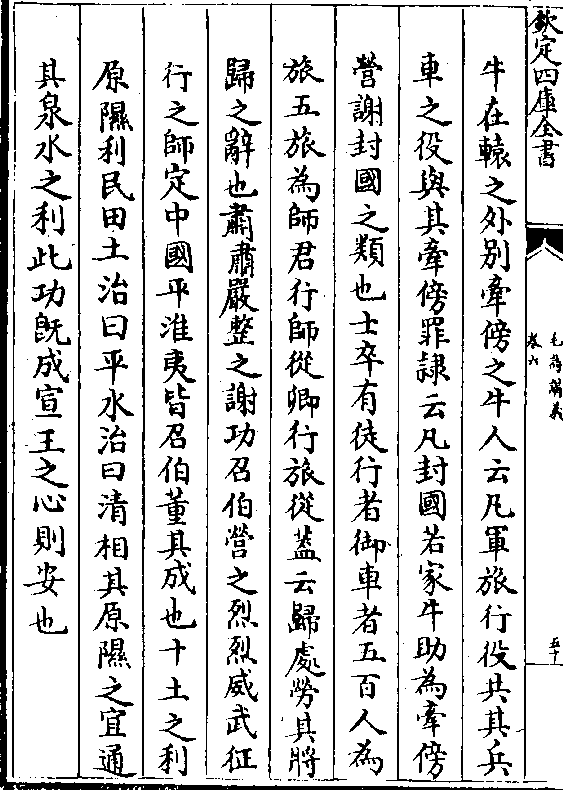 欽定四庫全書
毛詩講義
卷六
五十
牛在轅之外别牽傍之牛人云凡軍旅行役共其兵
車之役與其牽傍罪隷云凡封國若家牛助為牽傍
營謝封國之類也士卒有徒行者御車者五百人為
旅五旅為師君行師從卿行旅從葢云歸處勞其將
歸之辭也肅肅嚴整之謝功召伯營之烈烈威武征
行之師定中國平淮夷皆召伯董其成也十土之利
原隰利民田土治曰平水治曰清相其原隰之宜通
其泉水之利此功旣成宣王之心則安也